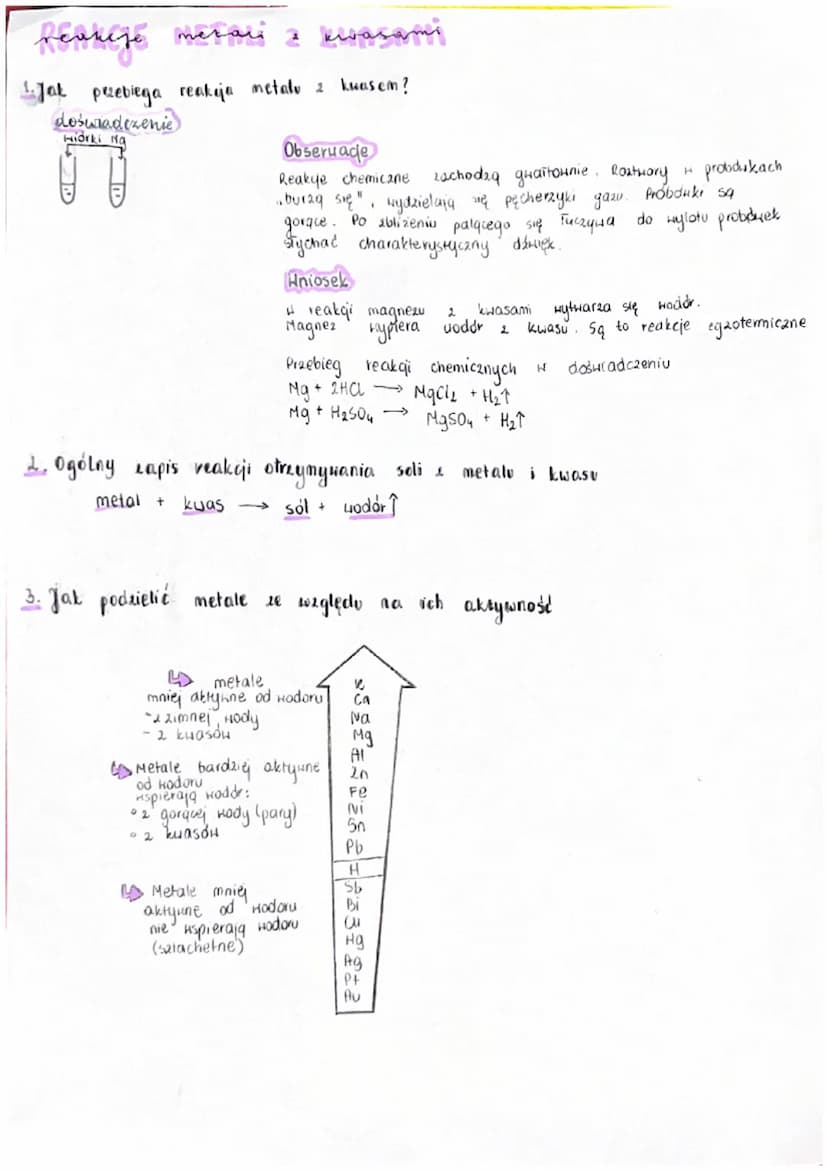 reakcje metali z kwasami
1. Jak przebiega reakcja metalu z kwasem?
doświadczenie
wiórki Mg
Obserwacje
Reakcje chemiczne zachodzą gwałtownie. Roztwory w probówkach
„burzą się", wydzielają się pęcherzyki gazu. Probówki są
gorące. Po zbliżeniu palącego się łuczywa do wylotu probówek
słychać charakterystyczny dźwięk.
Wniosek
W reakcji magnezu z kwasami wytwarza się wodór.
Magnez wypiera wodór z kwasu. Są to reakcje egzotermiczne
Przebieg reakcji chemicznych w doświadczeniu
Mg + 2HCl → MgCl₂ + H₂↑
Mg + H₂SO₄ → MgSO₄ + H₂↑
2. Ogólny zapis reakcji otrzymywania soli z metalu i kwasu
metal + kwas → sól + wodór↑
3. Jak podzielić metale ze względu na ich aktywność
metale
mniej aktywne od wodoru
- z zimnej wody
- z kwasów
Metale bardziej aktywne
od wodoru
wspierają wodór:
° z gorącej wody (pary)
° z kwasów
Metale mniej
aktywne od wodoru
nie wspierają wodoru
(szlachetne)
K
Ca
Na
Mg
Al
Zn
Fe
Ni
Sn
Pb
H
Sb
Bi
Cu
Hg
Ag
Pt
Au